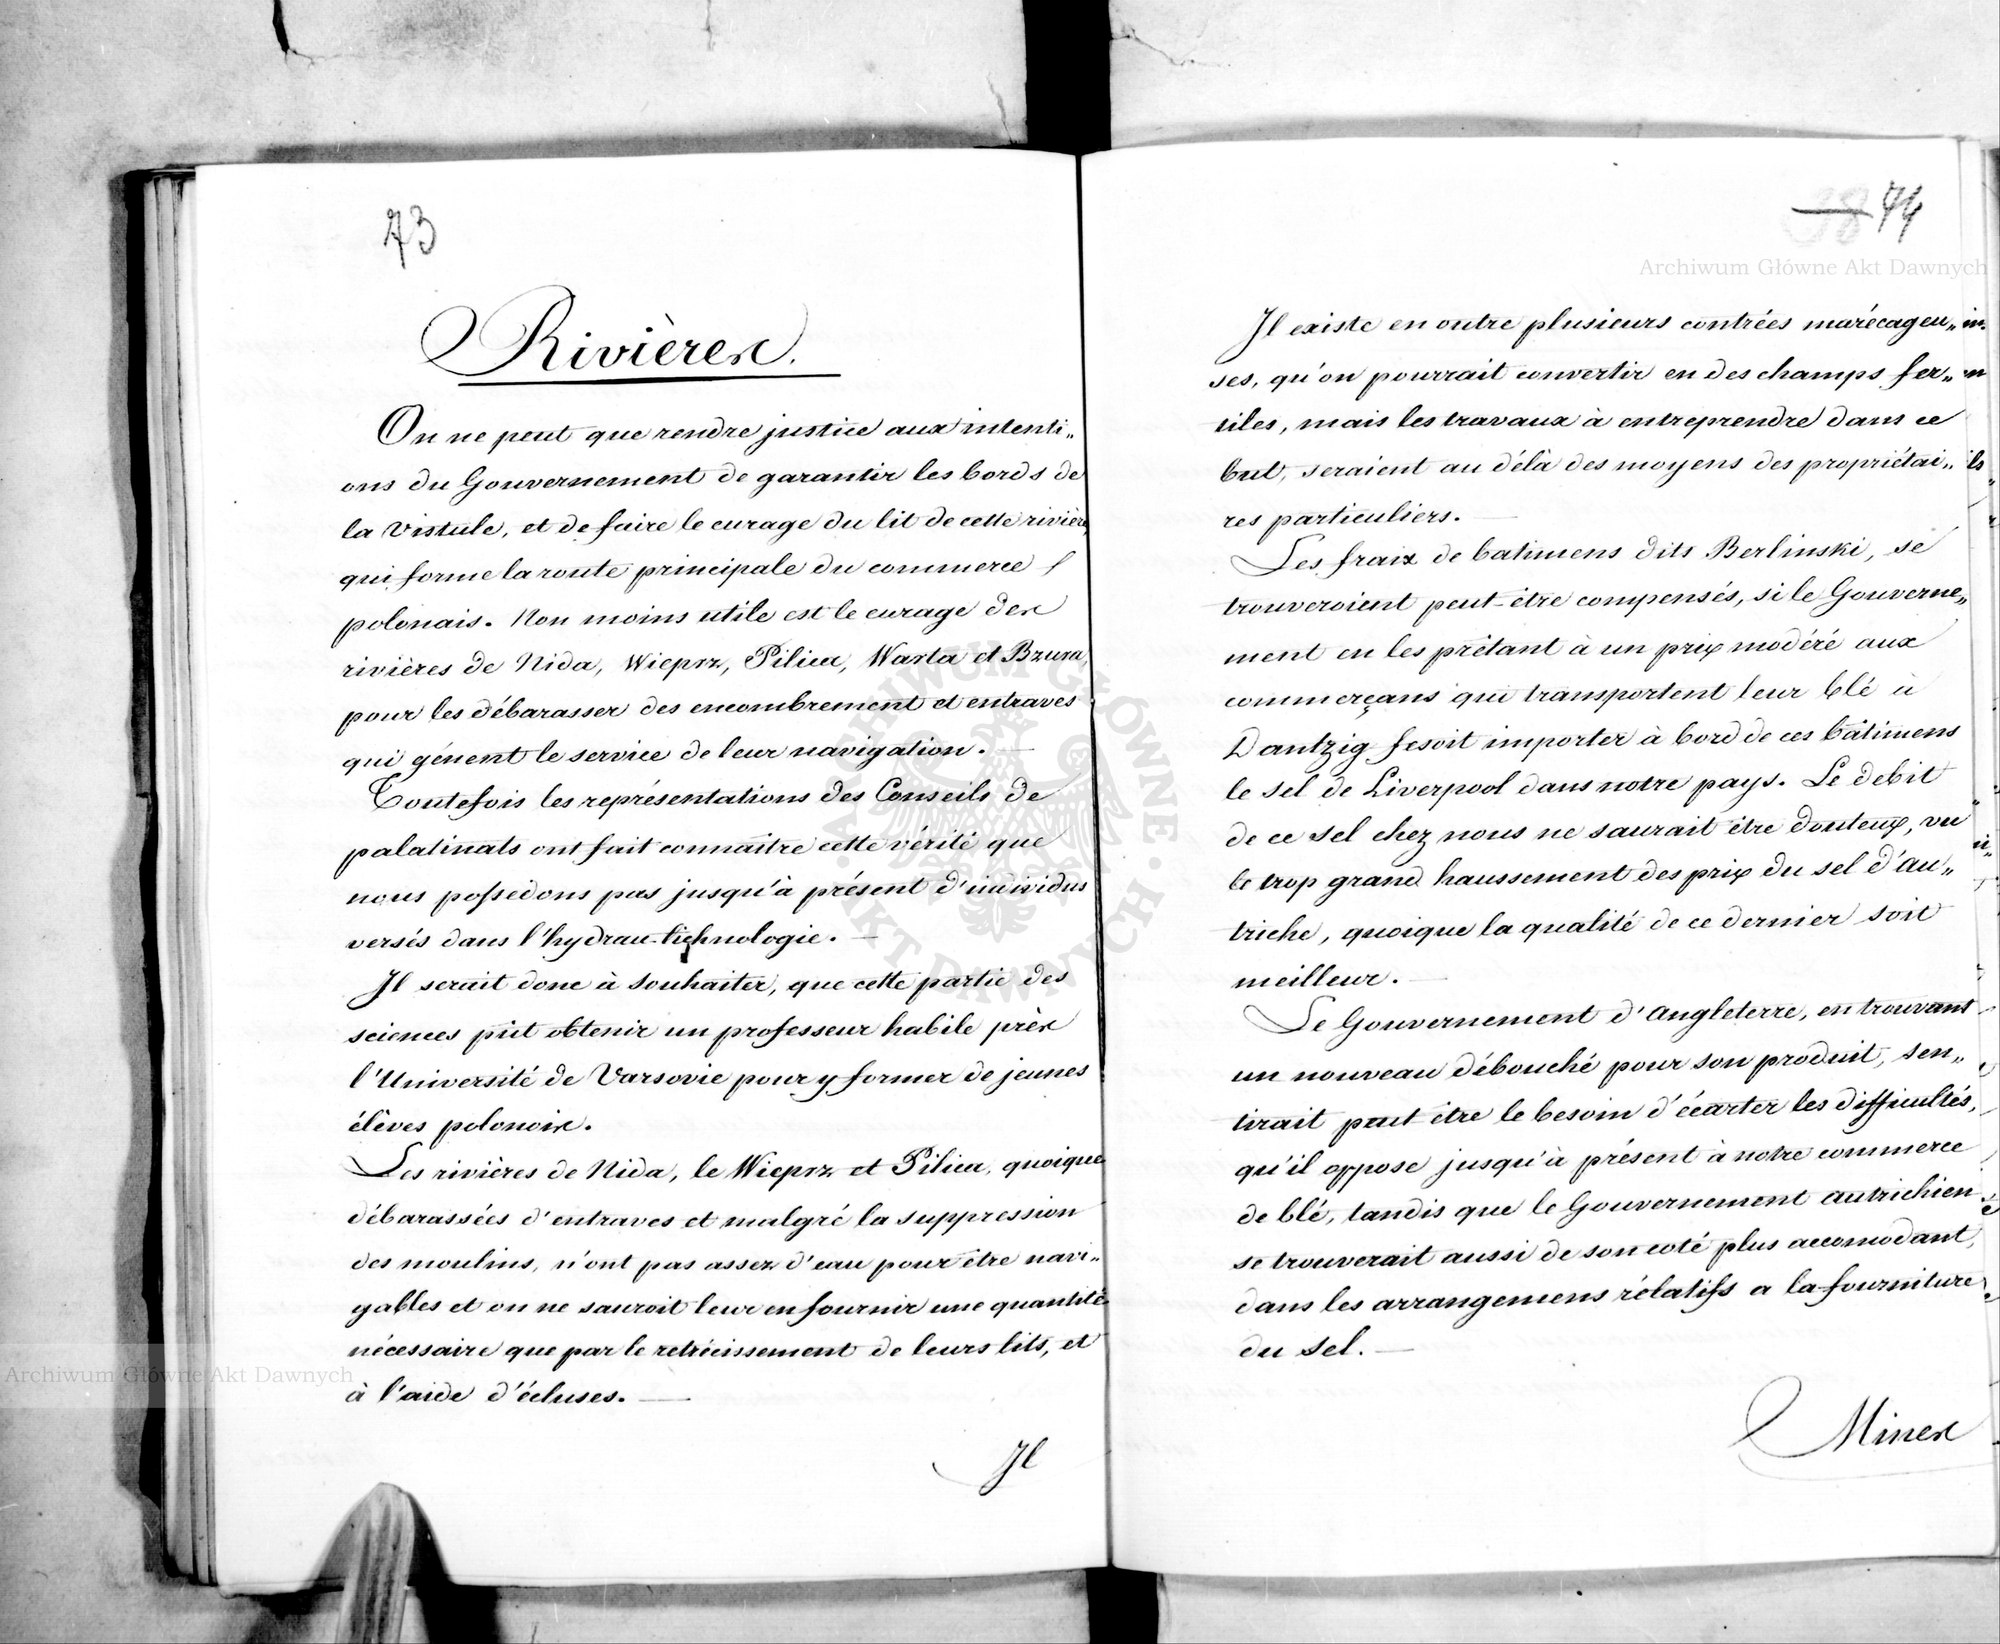 73
Rivières.
On ne peut que rendre justice aux intenti„
ons du Gouvernement de garantir les bords de
la Vistule, et de faire le curage du lit de cette rivière,
qui forme la route principale du commerce
polonais. Non moins utile est le curage des
rivières de Nida, Wieprz, Pilica, Warta et Bzura,
pour les débarasser des encombrement et entraves
qui gênent le service de leur navigation. —
Toutefois les représentations des Conseils de
palatinats ont fait connaitre cette vérité que
nous possedons pas jusqu'à présent d'individus
versés dans l'hydrau-technologie. —
Il serait donc à souhaiter, que cette partie des
sciences pût obtenir un professeur habile près
l'Université de Varsovie pour y former de jeunes
élèves polonois.
Les rivières de Nida, le Wieprz et Pilica, quoique
débarassées d'entraves et malgré la suppression
des moulins, n'ont pas assez d'eau pour être navi„
gables et on ne sauroit leur en fournir une quantité
nécessaire que par le retrécissement de leurs lits, et
à l'aide d'écluses. —
Il
74
Il existe en outre plusieurs contrées marécageu„
ses, qu'on pourrait convertir en des champs fer„
tiles, mais les travaux à entreprendre dans ce
but, seraient au délà des moyens des propriétai„
res particuliers. —
Les fraix de batimens dits Berlinski, se
trouveroient peut-être compensés, si le Gouverne„
ment en les prêtant à un prix modéré aux
commerçans qui transportent leur blé à
Dantzig fesoit importer à bord de ces bâtimens
le sel de Liverpool dans notre pays. Le debit
de ce sel chez nous ne saurait être douteux, vu
le trop grand haussement des prix du sel d'Au„
triche, quoique la qualité de ce dernier soit
meilleur. —
Le Gouvernement d'Angleterre, en trouvant
un nouveau débouché pour son produit, sen„
tirait peut être le besoin d'écarter les difficultés,
qu'il oppose jusqu'à présent à notre commerce
de blé, tandis que le Gouvernement autrichien
se trouverait aussi de son coté plus accomodant,
dans les arrangemens rélatifs a la fourniture
du sel. —
Mines
Archiwum Główne Akt Dawnych
Archiwum Główne Akt Dawnych
ARCHIWUM GŁÓWNE AKT DAWNYCH